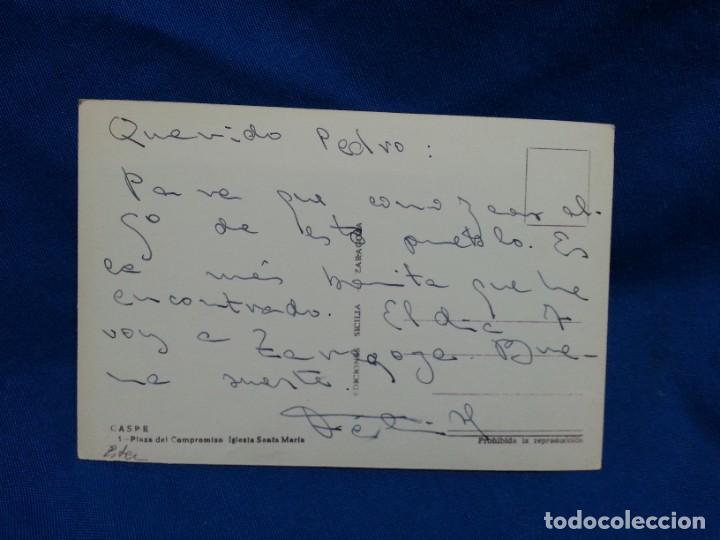 Querido Pedro:
Para que conozcas al-
go de este pueblo. Es
la más bonita que he
encontrado. El día 7
voy a Zaragoza. Bue-
na suerte.
EDICIONES SICILIA ZARAGOZA
CASPE
1 - Plaza del Compromiso Iglesia Santa María
Prohibida la reproducción
todocoleccion
todocoleccion.net